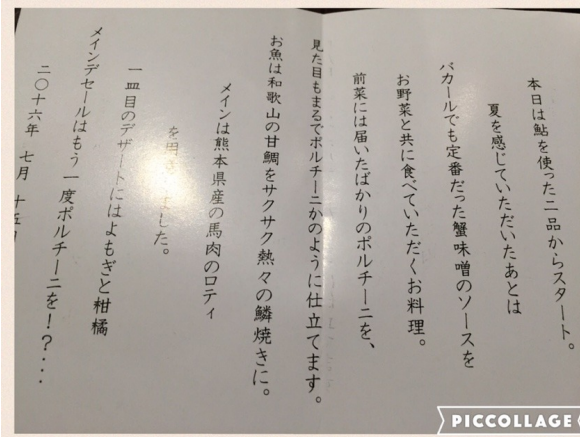 本日は鮎を使った二品からスタート。
夏を感じていただいたあとは
バカールでも定番だった蟹味噌のソースを
お野菜と共に食べていただくお料理。
前菜には届いたばかりのポルチーニを、
見た目もまるでポルチーニかのように仕立てます。
お魚は和歌山の甘鯛をサクサク熱々の鱗焼きに。
メインは熊本県産の馬肉のロティ
を用意しました。
一皿目のデザートにはよもぎと柑橘
メインデセールはもう一度ポルチーニを!?...
二〇十六年 七月 十五
PICCOLLAGE